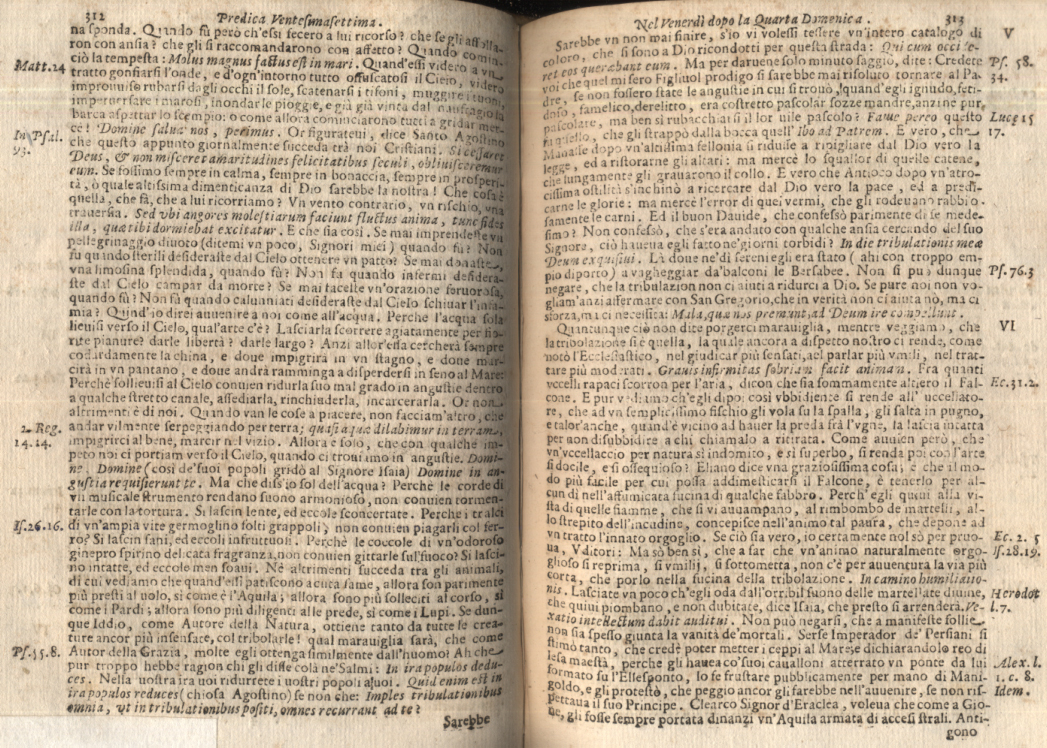 312
Predica Ventesimasettima.
na sponda. Quando fù però ch'essi fecero a lui ricorso? che se gli affolla-
ron con ansia? che gli si raccomandarono con affetto? Quando comin-
Matt.24
ciò la tempesta: Motus magnus factus est in mari. Quand'essi videro a vn
tratto gonfiarsi l'onde, e d'ogn'intorno tutto offuscatosi il Cielo, videro
improuiso rubarsi dagli occhi il sole, scatenarsi i tifoni, muggire i tuoni,
imperuersare i marosi, inondar le pioggie, e già già vinta dal naufragio la
barca aspettar lo scempio: o come allora cominciarono tutti a gridar mer-
In Psal.
93.
cè! Domine salua nos, perimus. Or figurateui, dice Santo Agostino
che questo appunto giornalmente succeda trà noi Cristiani. Si cessaret
Deus, & non misceret amaritudines felicitatibus seculi, obliuisceremur
eum. Se fossimo sempre in calma, sempre in bonaccia, sempre in prosperi-
tà, ò quale altissima dimenticanza di Dio sarebbe la nostra! Che cosa è
quella, che fà, che a lui ricorriamo? Vn vento contrario, vn rischio, vna
trauersia. Sed vbi angores molestiarum faciunt fluctus anima, tunc fides
illa, quæ tibi dormiebat excitatur. E che sia così. Se mai imprendeste vn
pellegrinaggio diuoto (ditemi vn poco, Signori miei) quando fù? Non
fù quando sterili desideraste dal Cielo ottenere vn parto? Se mai donaste
vna limosina splendida, quando fù? Non fù quando infermi desidera-
ste dal Cielo campar da morte? Se mai faceste vn'orazione feruorosa,
quando fù? Non fù quando calunniati desideraste dal Cielo schiuar l'infa-
mia? Quind'io direi auuenire a noi come all'acqua. Perche l'acqua sol-
lieuisi verso il Cielo, qual'arte c'è? Lasciarla scorrere agiatamente per fio-
rite pianure? darle libertà? darle largo? Anzi allor'essa cercherà sempre
codardamente la china, e doue impigrirà in vn stagno, e doue mar-
cirà in vn pantano, e doue andrà ramminga a disperdersi in seno al Mare:
Perchè sollieuisi al Cielo conuien ridurla suo mal grado in angustie dentro
a qualche stretto canale, assediarla, rinchiuderla, incarcerarla. Or non
altrimenti è di noi. Quando van le cose a piacere, non facciam'altro, che
2. Reg.
14.14.
andar vilmente serpeggiando per terra; quasi aquæ dilabimur in terram,
impigrirci al bene, marcir nel vizio. Allora è solo, che con qualche im-
peto noi ci portiam verso il Cielo, quando ci trouiamo in angustie. Domi-
ne, Domine (così de'suoi popoli gridò al Signore Isaia) Domine in an-
gustia requisierunt te. Ma che diss'io sol dell'acqua? Perchè le corde di
vn musicale strumento rendano suono armonioso, non conuien tormen-
tarle con la tortura. Si lascin lente, ed eccole sconcertate. Perche i tralci
Is.26.16.
di vn'ampia vite germoglino folti grappoli, non conuien piagarli col fer-
ro? Si lascin sani, ed eccoli infruttuosi. Perchè le coccole di vn'odoroso
ginepro spirino delicata fragranza, non conuien gittarle sul'fuoco? Si lasci-
no intatte, ed eccole men soaui. Nè altrimenti succeda tra gli animali,
di cui vediamo che quand'essi patiscono acuta fame, allora son parimente
più presti al uolo, si come è l'Aquila; allora sono più solleciti al corso, si
come i Pardi; allora sono più diligenti alle prede, si come i Lupi. Se dun-
que Iddio, come Autore della Natura, ottiene tanto da tutte le crea-
ture ancor più insensate, col tribolarle! qual marauiglia sarà, che come
Ps.55.8.
Autor della Grazia, molte egli ottenga similmente dall'huomo! Ah che
pur troppo hebbe ragion chi gli disse colà ne'Salmi: In ira populos dedu-
ces. Nella uostra ira uoi ridurrete i uostri popoli a uoi. Quid enim est in
ira populos reduces (chiosa Agostino) se non che: Imples tribulationibus
omnia, vt in tribulationibus positi, omnes recurrant ad te?
Sarebbe
Nel Venerdì dopo la Quarta Domenica.
313
V
Sarebbe vn non mai finire, s'io vi volessi tessere vn'intero catalogo di
coloro, che si sono a Dio ricondotti per questa strada: Qui cum occideret
Ps. 58.
34.
ret eos quærebant eum. Ma per daruene solo minuto saggio, dite: Credete
voi che quel misero Figliuol prodigo si sarebbe mai risoluto tornare al Pa-
dre, se non fossero state le angustie in cui si trouò, quand'egli ignudo, feti-
do, famelico, derelitto, era costretto pascolar sozze mandre, anzi ne pur
Luce 15
17.
pascolare, ma ben sì rubacchiarsi il lor uile pascolo? Fame pereo questo
fu quello, che gli strappò dalla bocca quell'Ibo ad Patrem. E vero, che
Manasse dopo vn'altissima fellonia si ridusse a ripigliare dal Dio vero la
legge, ed a ristorarne gli altari: ma mercè lo squallor di quelle catene,
che lungamente gli grauarono il collo. E vero che Antioco dopo vn'atro-
cissima ostilità s'inchinò a ricercare dal Dio vero la pace, ed a predi-
carne le glorie: ma mercè l'error di quei vermi, che gli rodeuano rabbio-
samente le carni. Ed il buon Dauide, che confessò parimente di se mede-
simo? Non confessò, che s'era andato con qualche ansia cercando del suo
Signore, ciò haueua egli fatto ne'giorni torbidi? In die tribulationis meæ
Deum exquisiui. Là doue ne'dì sereni egli era stato (ahi con troppo em-
Ps.76.3
pio diporto) a vagheggiar da'balconi le Bersabee. Non si può dunque
negare, che la tribulazion non ci aiuti a ridurci a Dio. Se pure noi non vo-
gliam'anzi affermare con San Gregorio, che in verità non ci aiuta nò, ma ci
sforza, ma ci necessita: Mala, quæ nos premunt, ad Deum ire compellunt.
VI
Quantunque ciò non dite porgerci marauiglia, mentre veggiamo, che
la tribolazione si è quella, la quale ancora a dispetto nostro ci rende, come
notò l'Ecclesiastico, nel giudicar più sensati, nel parlar più vmili, nel trat-
Ec.31.2.
tare più moderati. Grauis infirmitas sobriam facit animam. Fra quanti
vccelli rapaci scorron per l'aria, dicon che sia sommamente altiero il Fal-
cone. E pur vediamo ch'egli dipoi così vbbidiente si rende all'uccellato-
re, che ad vn semplicissimo fischio gli vola su la spalla, gli salta in pugno,
e talor'anche, quand'è vicino ad hauer la preda frà l'vgne, la lascia intatta
per non disubbidire a chi chiamalo a ritirata. Come auuien però, che
vn'vccellaccio per natura sì indomito, e sì superbo, si renda poi con l'arte
sì docile, e sì ossequioso? Eliano dice vna graziosissima cosa; e che il mo-
do più facile per cui possa addimesticarsi il Falcone, è tenerlo per al-
cun dì nell'affumicata fucina di qualche fabbro. Perch'egli quiui alla vi-
sta di quelle fiamme, che sì vi auuampano, al rimbombo de'martelli, al-
lo strepito dell'incudine, concepisce nell'animo tal paura, che depone ad
Ec. 2. 5
vn tratto l'innato orgoglio. Se ciò sia vero, io certamente nol sò per pruo-
Is.28.19.
ua, Vditori: Ma sò ben sì, che a far che vn'animo naturalmente orgo-
glioso si reprima, si vmilij, si sottometta, non c'è per auuentura la via più
corta, che porlo nella fucina della tribolazione. In camino humiliatio-
Herodot
l.7.
nis. Lasciate vn poco ch'egli oda dall'orribil suono delle martellate diuine,
che quiui piombano, e non dubitate, dice Isaia, che presto si arrenderà. Ve-
xatio intellectum dabit auditui. Non può negarsi, che a manifeste follie
non sia spesso giunta la vanità de'mortali. Serse Imperador de'Persiani si
stimò tanto, che credè poter metter i ceppi al Mare; e dichiarandolo reo di
Alex. l.
1. c. 8.
Idem.
lesa maestà, perche gli haueа co'suoi caualloni atterrato vn ponte da lui
formato su l'Ellesponto, lo fe frustare publicamente per mano di Mani-
goldo, e gli protestò, che peggio ancor gli farebbe nell'auuenire, se non ris-
pettaua il suo Principe. Clearco Signor d'Eraclea, voleua che come a Gio-
ue, gli fosse sempre portata dinanzi vn'Aquila armata di accesi strali. Anti-
gono